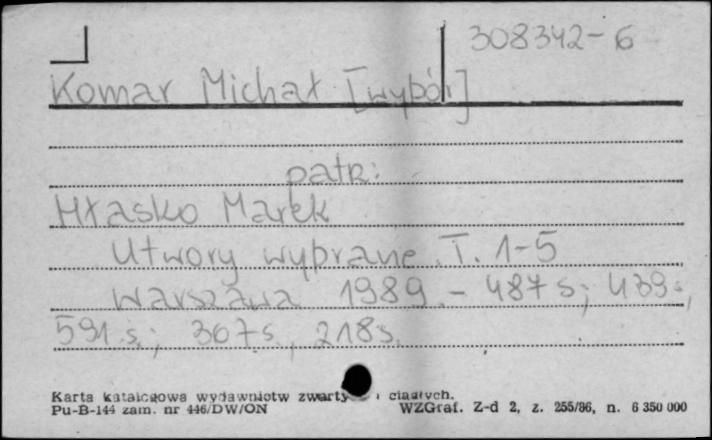 308342-6
Komar Michał [wybór]
patrz:
Hłasko Marek
Utwory wybrane. T. 1-5
Warszawa 1989. - 487 s; 439 s,
591 s.; 367 s., 218 s.
Karta katalogowa wydawnictw zwartych i ciągłych.
Pu-B-144 zam. nr 446/DW/ON WZGraf. Z-d 2, z. 255/86, n. 6 350 000